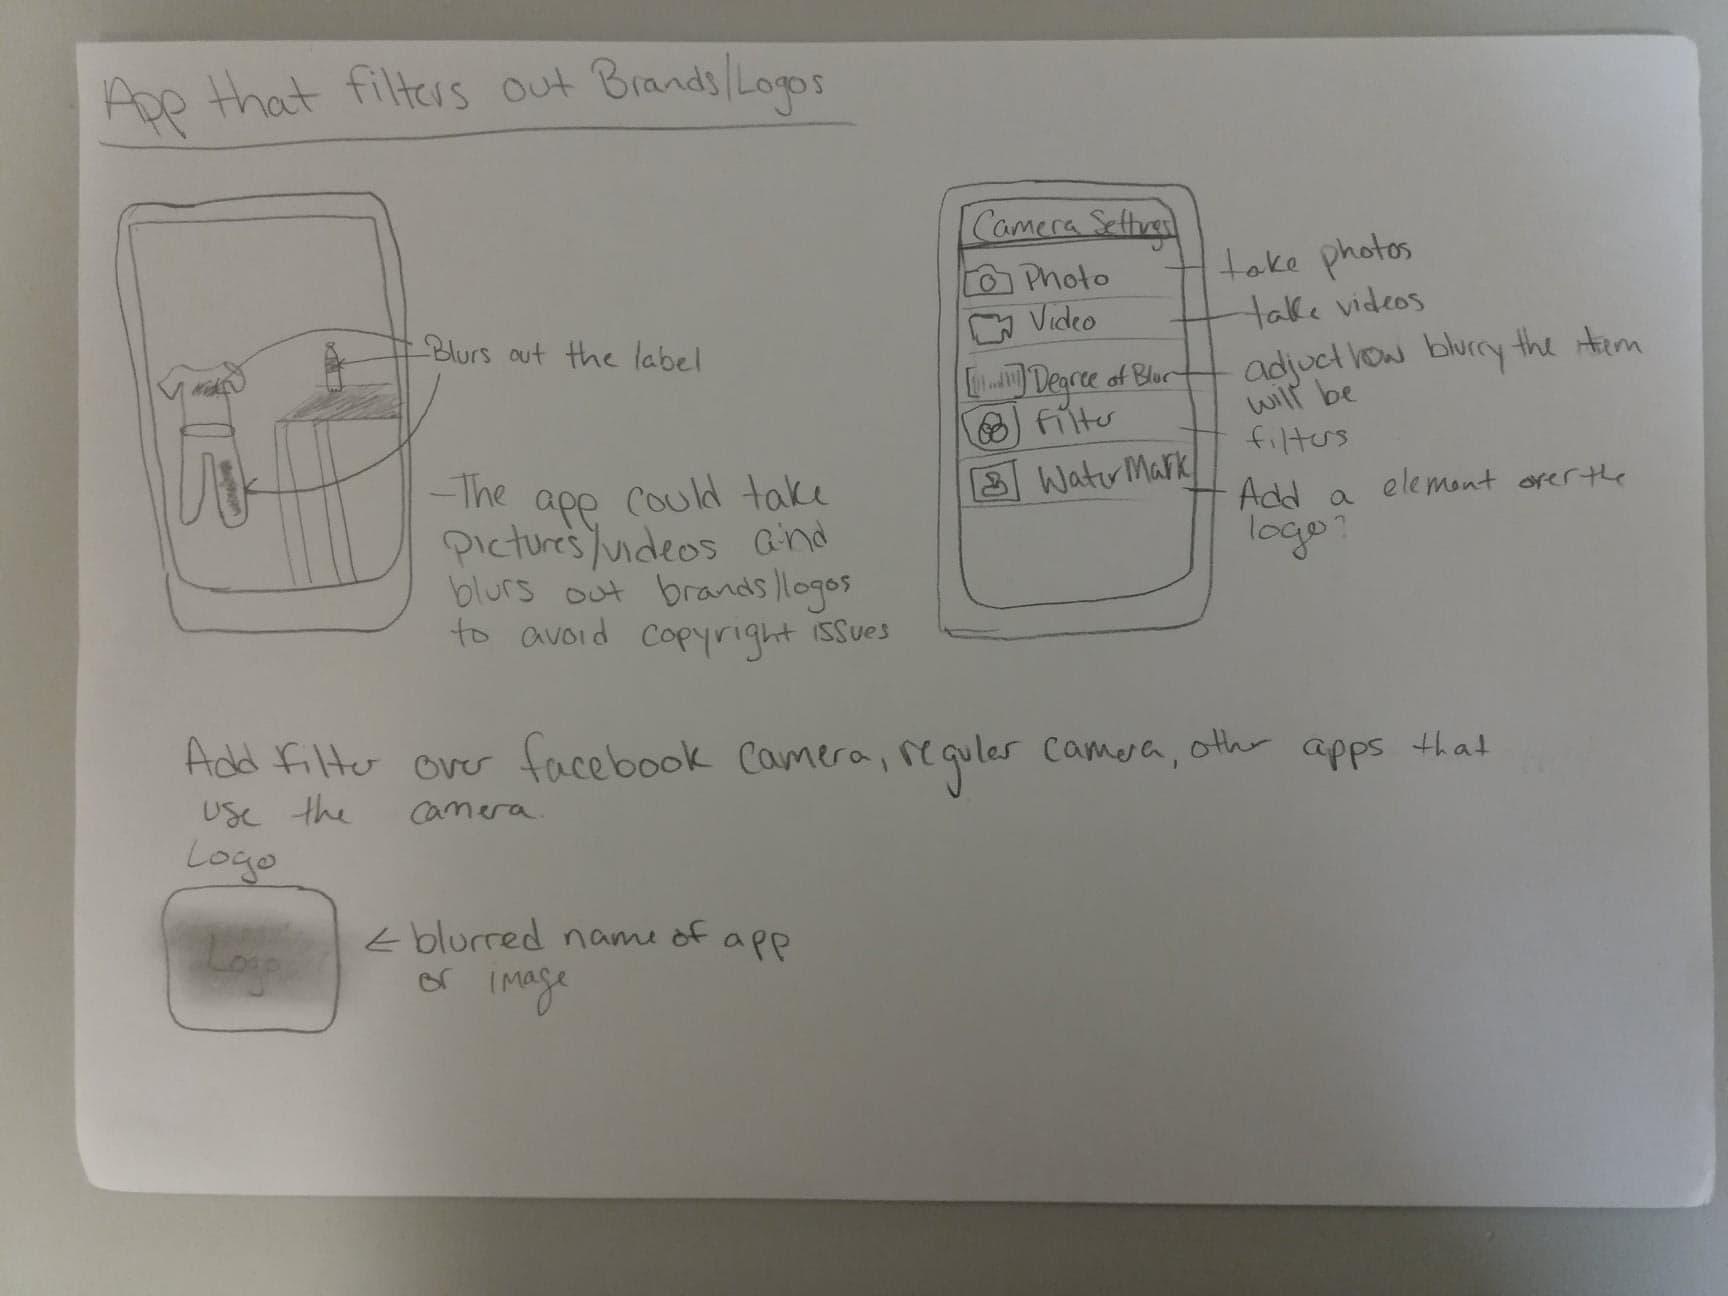 App that filters out Brands/Logos
Blurs out the label
-The app could take
pictures/videos and
blurs out brands/logos
to avoid copyright issues
Camera Settings
Photo
Video
Degree of Blur
Filter
WaterMark
take photos
take videos
adjuct how blurry the item
will be
filters
Add a element over the
logo?
Add Filter over facebook camera, reguler camera, other apps that
use the camera.
Logo
Logo
← blurred name of app
or image